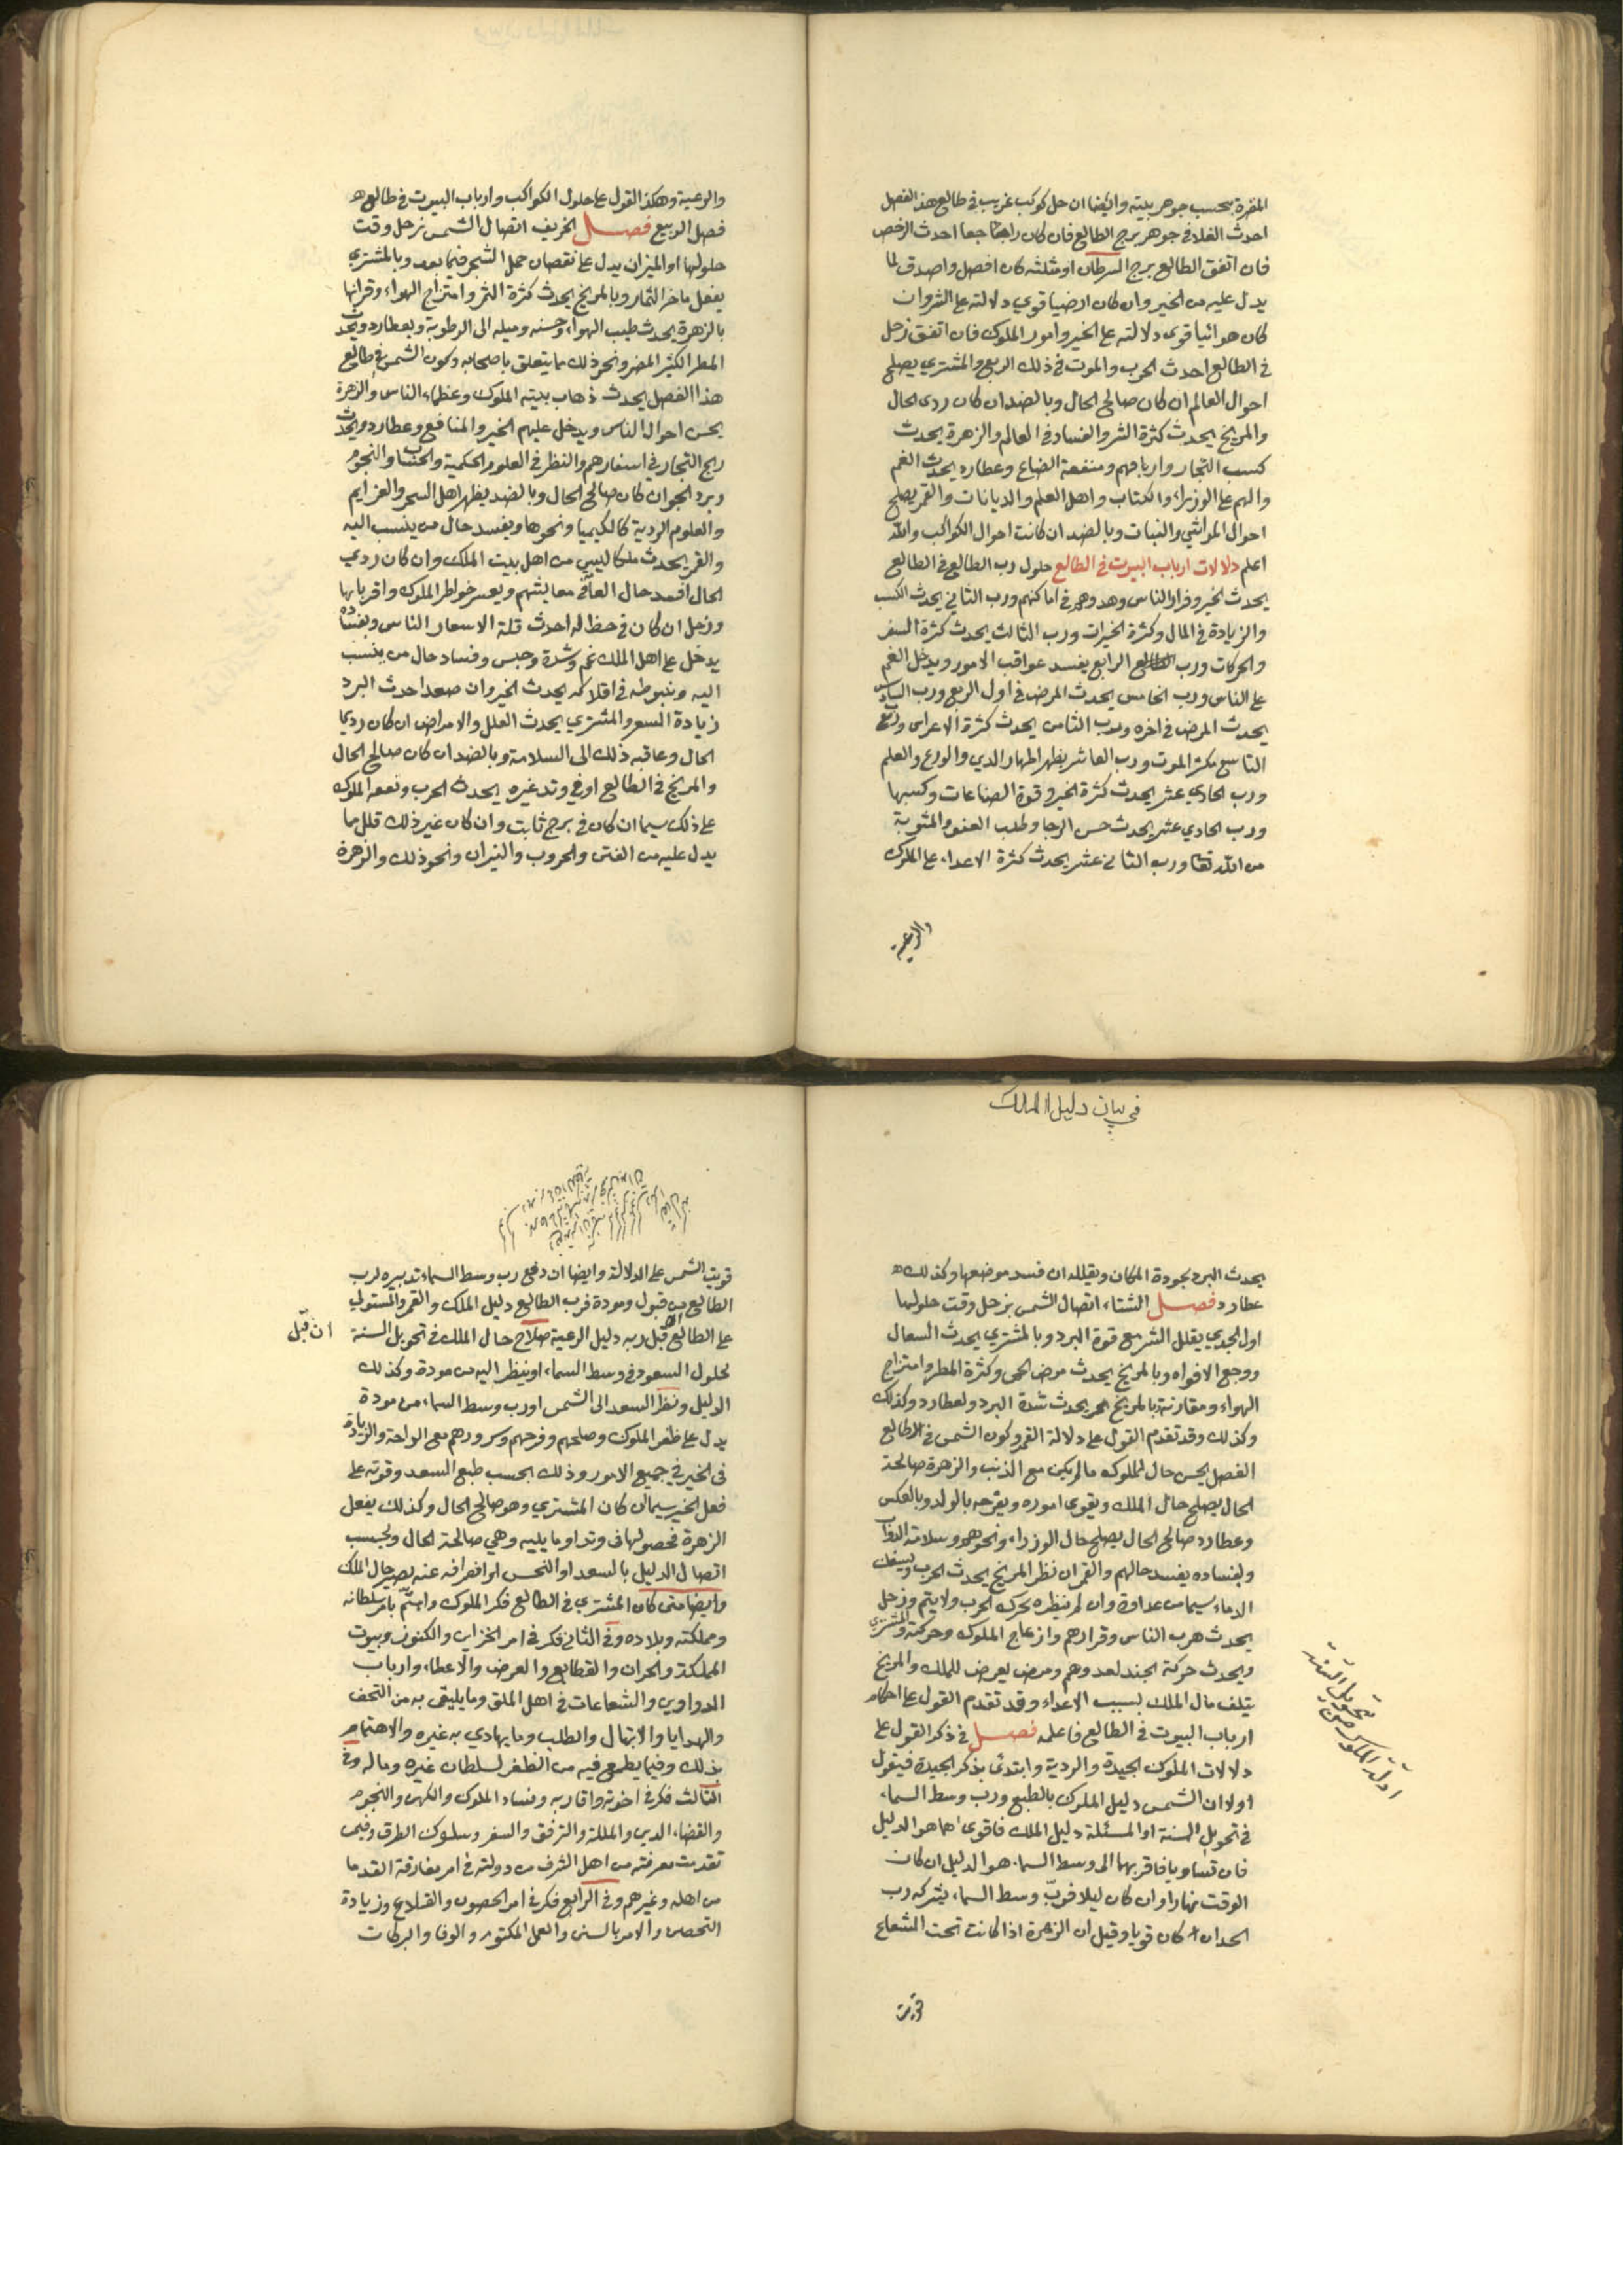 المضرة بحسب جوهر بيته وايضا ان حل كوكب غريب في طالع هذا الفصل
احدث الغلا في جوهر برج الطالع فان كان راجعا احدث الرخص
فان اتفق الطالع برج السرطان او مثلثه كان افضل واصدق لما
يدل عليه من الخير وان كان ارضيا قوي دلالته على الشر وان
كان هوائيا قوى دلالته على الخير وامور الملوك فان اتفق زحل
في الطالع احدث الحرب والموت في ذلك الربع والمشتري يصلح
احوال العالم ان كان صالح الحال وبالضد ان كان ردى الحال
والمريخ يحدث كثرة الشر والفساد في العالم والزهرة يحدث
كسب التجار وارباحهم ومنفعة الضياع وعطارد يحدث الغم
والهم على الوزراء والكتاب واهل العلم والديانات والقمر يصلح
احوال المواشي والنبات وبالضد ان كانت احوال الكواكب والله
اعلم دلالات ارباب البيوت في الطالع حلول رب الطالع في الطالع
يحدث الخير وقرار الناس وهدوهم في اماكنهم ورب الثاني يحدث الكسب
والزيادة في المال وكثرة الخيرات ورب الثالث يحدث كثرة السفر
والحركات ورب الرابع يفسد عواقب الامور ويدخل الغم
على الناس ورب الخامس يحدث المرض في اول الربع ورب السادس
يحدث المرض في اخره ورب الثامن يحدث كثرة الاعراس
التاسع يكثر الموت ورب العاشر يظهر الدين والورع والعلم
ورب الحادي عشر يحدث كثرة الخير وقوة الصناعات وكسبها
ورب الحادي عشر يحدث حسن الرجا وطلب العفو والمثوبة
من الله تعا ورب الثاني عشر يحدث كثرة الاعداء على الملوك
والرعية
والرعية وهكذا القول على حلول الكواكب وارباب البيوت في طالع
فصل الربيع فصل الخريف اتصال الشمس بزحل وقت
حلولها اول الميزان يدل على نقصان حمل الشجر فيما بعد وبالمشتري
يفعل ماخر الثمار وبالمريخ يحدث كثرة الشر وامتزاج الهواء وقرانها
بالزهرة يحدث طيب الهواء وحسنه وميله الى الرطوبة وبعطارد ويحدث
المطر الكثير المضر ونحو ذلك ما يتعلق باصحابه وكون الشمس في طالع
هذا الفصل يحدث ذهاب بيته الملوك وعظماء الناس والزهرة
يحسن احوال الناس ويدخل عليهم الخير والمنافع وعطارد ويحدث
ربح التجار في اسفارهم والنظر في العلوم الحكمية والحساب والنجوم
وبرد الجو ان كان صالح الحال وبالضد يظهر اهل السحر والعزايم
والعلوم الردية كالكيميا ونحوها ويفسد حال من ينسب اليه
والقمر يحدث ملكا ليس من اهل بيت الملك وان كان ردي
الحال افسد حال العامة في معايشهم ويعسر خواطر الملوك واقربايها
وزحل ان كان في حظ له احدث قلة الاسعار الناس وبفساده
يدخل على اهل الملك غم وشدة وحبس وفساد حال من ينسب
اليه وبهبوطه في افلاكه يحدث الخير وان صعد احدث البرد
زيادة السعر والمشتري يحدث العلل والامراض ان كان رديا
الحال وعاقبه ذلك الى السلامة وبالضد ان كان صالح الحال
والمريخ في الطالع او في وتد غيره يحدث الحرب الملوك
على ذلك سيما ان كان في برج ثابت وان كان غير ذلك قلل ما
يدل عليه من الفتن والحروب والنيران ونحو ذلك والزهرة
في بيان دليل الملك
يحدث البرد بجودة المكان ويقلله ان فسد موضعها وكذلك
عطارد فصل الشتاء اتصال الشمس بزحل وقت حلولها
اول الجدي يقلل الشر مع قوة البرد وبالمشتري يحدث السعال
ووجع الافواه وبالمريخ يحدث مرض الحمى وكثرة المطر وامتزاج
الهواء ومقارنة بالمريخ يحدث شدة البرد ولعطارد وكذلك
وكذلك وقد تقدم القول على دلالة القمر وكون الشمس في الطالع
الفصل يحسن حال الملوك مالم يكن مع الذنب والزهرة صالحة
الحال يصلح حال الملك ويقوى اموره ويفرحه بالولد وبالعكس
وعطارد صالح الحال يصلح حال الوزراء ونحوهم وسلامة الدواب
وبفساده يفسد حالهم والقمر ان نظر المريخ يحدث الحرب وسفك
الدماء سيما من عداوة وان لم ينظره تحرك الحرب ولا يتم وزحل
يحدث هرب الناس وقرارهم وازعاج الملوك وحركته والمشتري
ويحدث حركة الجند لعدوهم ومرض يعرض للملك والمريخ
يتلف مال الملك بسبب الاعداء وقد تقدم القول على احكام
ارباب البيوت في الطالع فاعلمه فصل في ذكر القول على
دلالات الملوك الجيدة والردية وابتدئ بذكر الجيدة فيقول
اولا ان الشمس دليل الملوك بالطبع ورب وسط السماء
في تحويل السنة او المسئلة دليل الملك فاقوى اهما هو الدليل
فان تساويا فاقربهما الى وسط السماء هو الدليل ان كان
الوقت نهارا وان كان ليلا فرب وسط السماء يشركه رب
الحد ان كان قويا وقيل ان الزهرة اذا كانت تحت الشعاع
قويت
ادلة الملوك من تحويل السنة
قويت الشمس على الدلالة وايضا ان دفع رب وسط السماء تدبيره لرب
الطالع من قبول ومودة فرب الطالع دليل الملك والقمر والمستولي
على الطالع قبل ربه دليل الرعية صلاح حال الملك في تحويل السنة
ان قبل
لحلول السعود في وسط السماء او ينظر اليه من مودة وكذلك
الدليل ونظر السعد الى الشمس او رب وسط السماء من مودة
يدل على ظفر الملوك وصلحهم وفرحهم وسرورهم مع الراحة والزيادة
في الخير في جميع الامور وذلك بحسب طبع السعد وقوته على
فعل الخير سيما ان كان المشتري وهو صالح الحال وكذلك يفعل
الزهرة في وتد او ما يليه وهي صالحة الحال وبحسب
اتصال الدليل بالسعد او النحس او انصرافه عنه يصير حال الملك
وايضا متى كان المشتري في الطالع فكر الملوك واهتم بامر سلطانه
ومملكته وبلاده وفي الثاني فكر في امر الخزاين والكنوز وبيوت
المملكة والقطايع والعرض والاعطاء وارباب
الدواوين والشعاعات في اهل الملق وما يليق به من التحف
والهدايا والابتهال والطلب وما يهادي به غيره والاهتمام
بذلك وفيما يطمع فيه من الظفر لسلطان غيره وماله وفي
الثالث فكر في اخوته واقاربه ونساء الملوك والكهن والنجوم
والقضاء الدين والمللة والترفق والسفر وسلوك الطرق وفيمن
تقدمت معرفته من اهل الشرف من دولته في امر مفارقة القدما
من اهله وغيرهم وفي الرابع فكر في امر الحصون والقلاع وزيادة
التحصن والامر بالسنن والعمل المكتوم والوفا والبركات